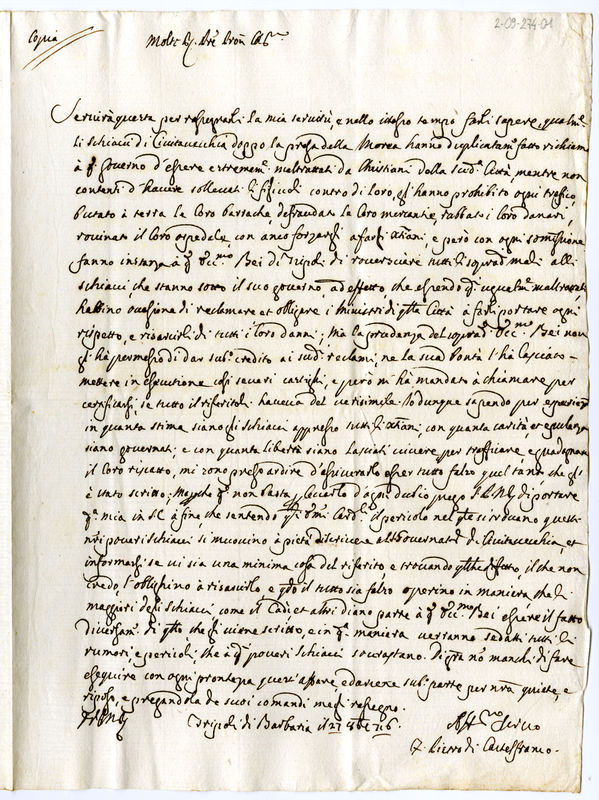 2-09-274-01
Copia
Molto
Servirà questa per rassegnarli la mia servitù, e nello istesso tempo farli sapere, qualm.te
li schiavi di Civitavecchia doppo la presa della Morea hanno duplicatam.te fatto richiami
à q.o governo d'essere estremam.te maltrattati da Christiani della sud.a Città, mentre non
contenti d'havere sollevati li contro di loro, gl'hanno prohibito ogni trafico,
buttato à terra le loro barrache, defraudate le loro mercantie, rubbato i loro danari,
rovinato il loro ospedale, con anco forzarli a farsi xtiani, e però con ogni somissione
fanno instanza à q.o Ecc.mo Bei di Tripoli di roversciare tutti li soprad.i mali alli
schiavi, che stanno sotto il suo governo, ad effetto, che essendo q.i ugualm.te maltrattati,
habbino occasione di reclamare et obligare i Ministri di q.lla Città à farli portare ogni
rispetto, e risarcirli di tutti i loro danni; Ma la prudenza del soprad.o Ecc.mo Bei non
gl'hà permesso di dar sub.o credito ai sud.i reclami, ne la sua bontà l'hà lasciato
mettere in essecutione così severi castighi, e però m'hà mandato à chiamare per
certificarsi, se tutto il riferitoli haveva del verisimile. Io dunque sapendo per esperienza
in quanta stima siano gli schiavi appresso tutti li xtiani, con quanta carità, et
siano governati; e con quanta libertà siano lasciati vivere, per trafficare, e guadagnare
il loro rispetto, mi sono preso ardire d'assicurarlo esser tutto falso quel tanto che gl'
è stato scritto; Mà perche q.o non basta levarlo d'ogni dubio, prego di portare
q.a mia in à fine, che sentendo q.lli Em.i Card.i il pericolo nel q.le si trovano questi
n.ri poveri schiavi si muovino à pietà di scrivere al Governat.e di Civitavecchia, et
informarsi se vi sia una minima cosa del riferito e trovando q.lche difetto, il che non
credo, l'oblighino à risarcirlo, e q.do il tutto sia falso operino in maniera, che li
maggiori degli schiavi, come il Cadì et altri diano parte à q.o Ecc.mo Bei essere il fatto
diversam.te di q.llo che gli viene scritto, e in q.a maniera verranno sedatti tutti li
rumori, e pericoli, che à q.i poveri schiavi sovrastano. Di gra non manchi di fare
esseguire con ogni prontezza quest'affare, e darcene sub.o parte per n.ra quiete, e
riposo, e pregandola de suoi comandi me li rassegno.
Tripoli di Barbaria il
Servo
F. Pietro di Castelfranco.